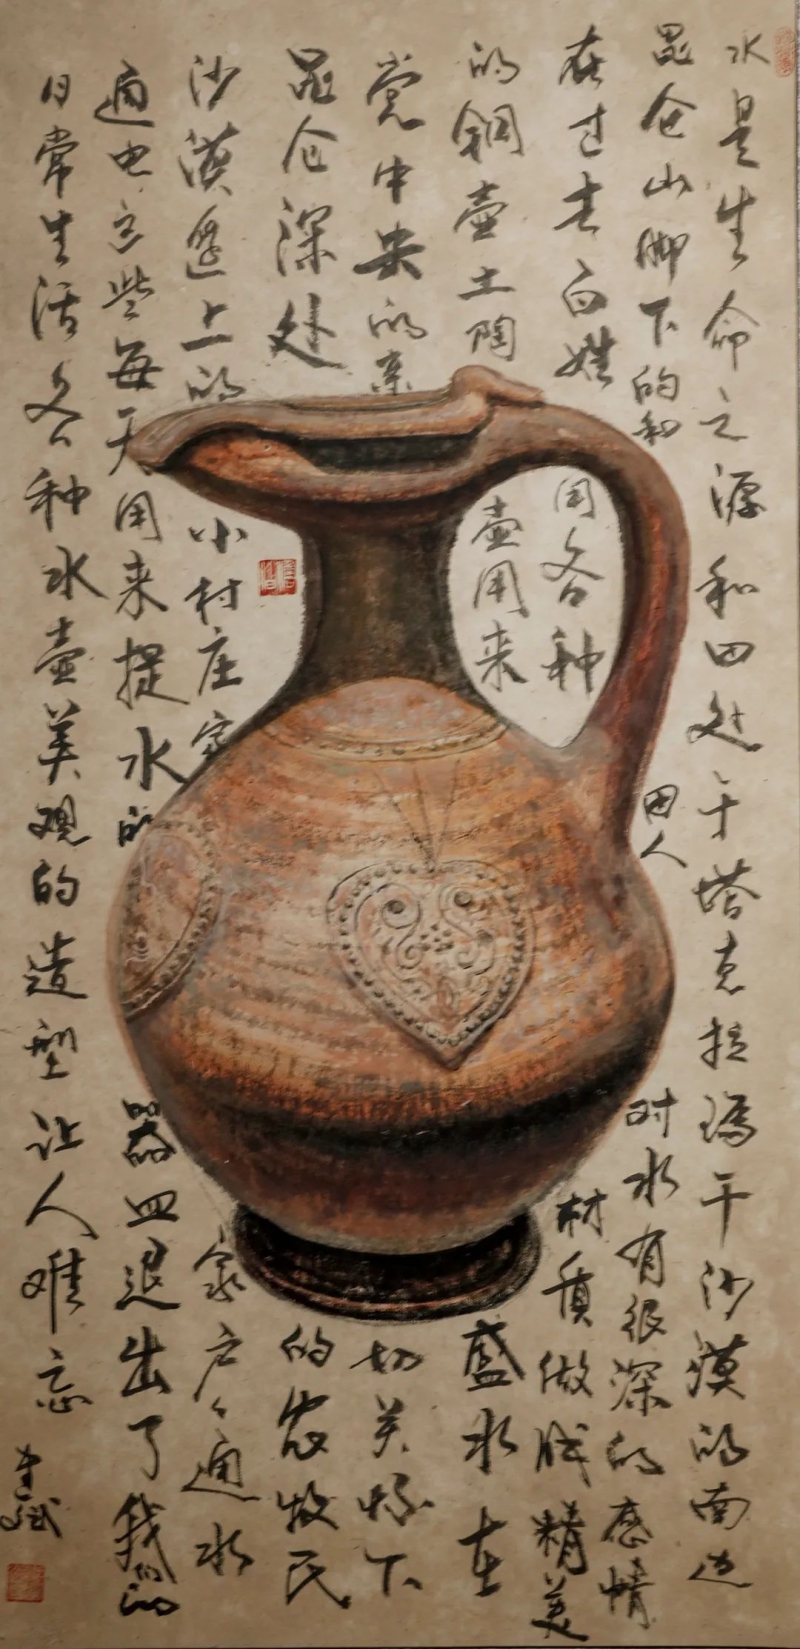 水是生命之源和田处于塔克拉玛干沙漠的南边
昆仑山脚下的和田人对水有很深的感情
在过去百姓用各种材质做成精美
的铜壶土陶壶用来盛水在
党中央的亲切关怀下
昆仑深处的农牧民
沙漠边上的小村庄家家户々通水
通电这些每天用来提水的器皿退出了我们的
日常生活各种水壶美观的造型让人难忘